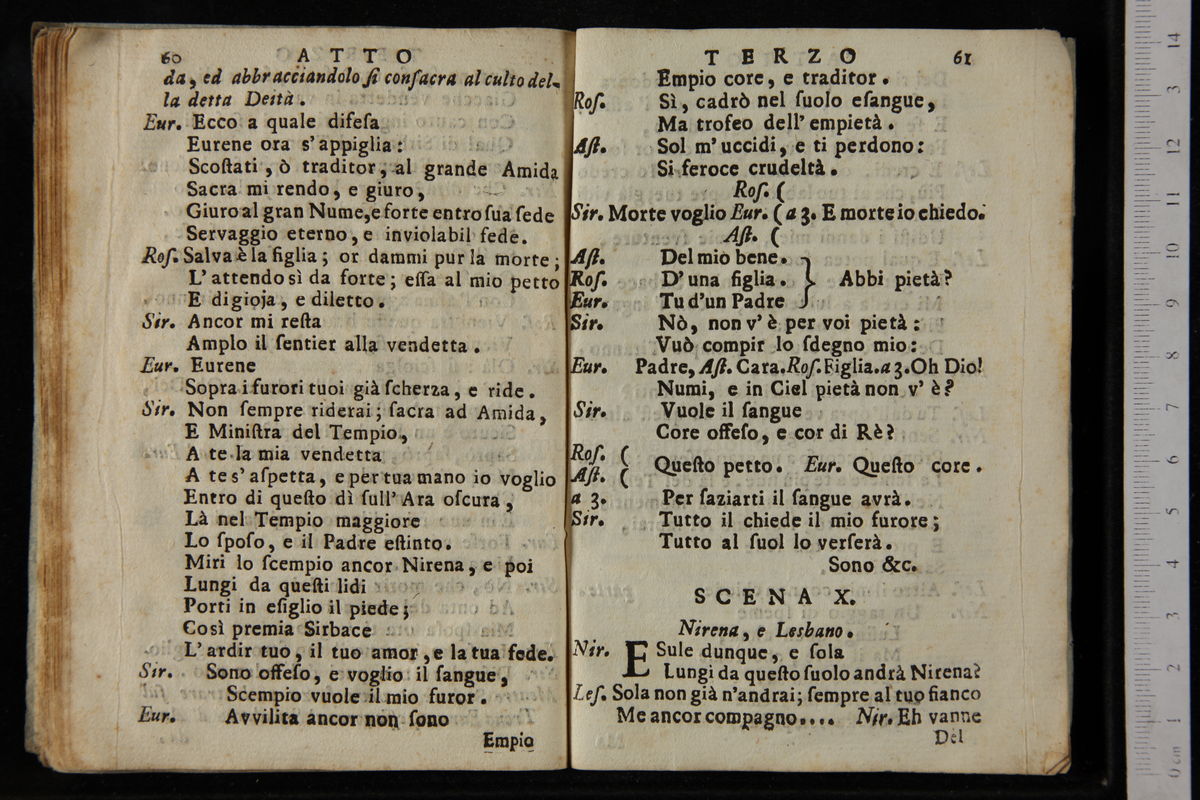 60 ATTO
da, ed abbracciandolo ſi conſacra al culto del-
la detta Deità.
Eur. Ecco a quale difeſa
Eurene ora s'appiglia:
Scoſtati, ò traditor, al grande Amida
Sacra mi rendo, e giuro,
Giuro al gran Nume, e forte entro ſua ſede
Servaggio eterno, e inviolabil fede.
Roſ. Salva è la figlia; or dammi pur la morte;
L'attendo sì da forte; eſſa al mio petto
E di gioja, e diletto.
Sir. Ancor mi reſta
Amplo il ſentier alla vendetta.
Eur. Eurene
Sopra i furori tuoi già ſcherza, e ride.
Sir. Non ſempre riderai; ſacra ad Amida,
E Miniſtra del Tempio,
A te la mia vendetta
A te s'aſpetta, e per tua mano io voglio
Entro di queſto dì ſull'Ara oſcura,
Là nel Tempio maggiore
Lo ſpoſo, e il Padre eſtinto.
Miri lo ſcempio ancor Nirena, e poi
Lungi da queſti lidi
Porti in eſiglio il piede;
Così premia Sirbace
L'ardir tuo, il tuo amor, e la tua fede.
Sir. Sono offeſo, e voglio il ſangue,
Scempio vuole il mio furor.
Eur. Avvilita ancor non ſono
Empio
TERZO 61
Empio core, e traditor.
Roſ. Sì, cadrò nel ſuolo eſangue,
Ma trofeo dell'empietà.
Aſt. Sol m'uccidi, e ti perdono:
Si feroce crudeltà.
Roſ. (
Sir. Morte voglio Eur. ( a 3. E morte io chiedo.
Aſt. (
Aſt. Del mio bene.
Roſ. D'una figlia. } Abbi pietà?
Eur. Tu d'un Padre
Sir. Nò, non v'è per voi pietà:
Vuò compir lo ſdegno mio:
Eur. Padre, Aſt. Cara. Roſ. Figlia. a 3. Oh Dio!
Numi, e in Ciel pietà non v'è?
Sir. Vuole il ſangue
Core offeſo, e cor di Rè?
Roſ. (
Aſt. ( Queſto petto. Eur. Queſto core.
a 3. Per ſaziarti il ſangue avrà.
Sir. Tutto il chiede il mio furore;
Tutto al ſuol lo verſerà.
Sono &c.
SCENA X.
Nirena, e Lesbano.
Nir. ESule dunque, e ſola
Lungi da queſto ſuolo andrà Nirena?
Leſ. Sola non già n'andrai; ſempre al tuo fianco
Me ancor compagno.... Nir. Eh vanne
Del